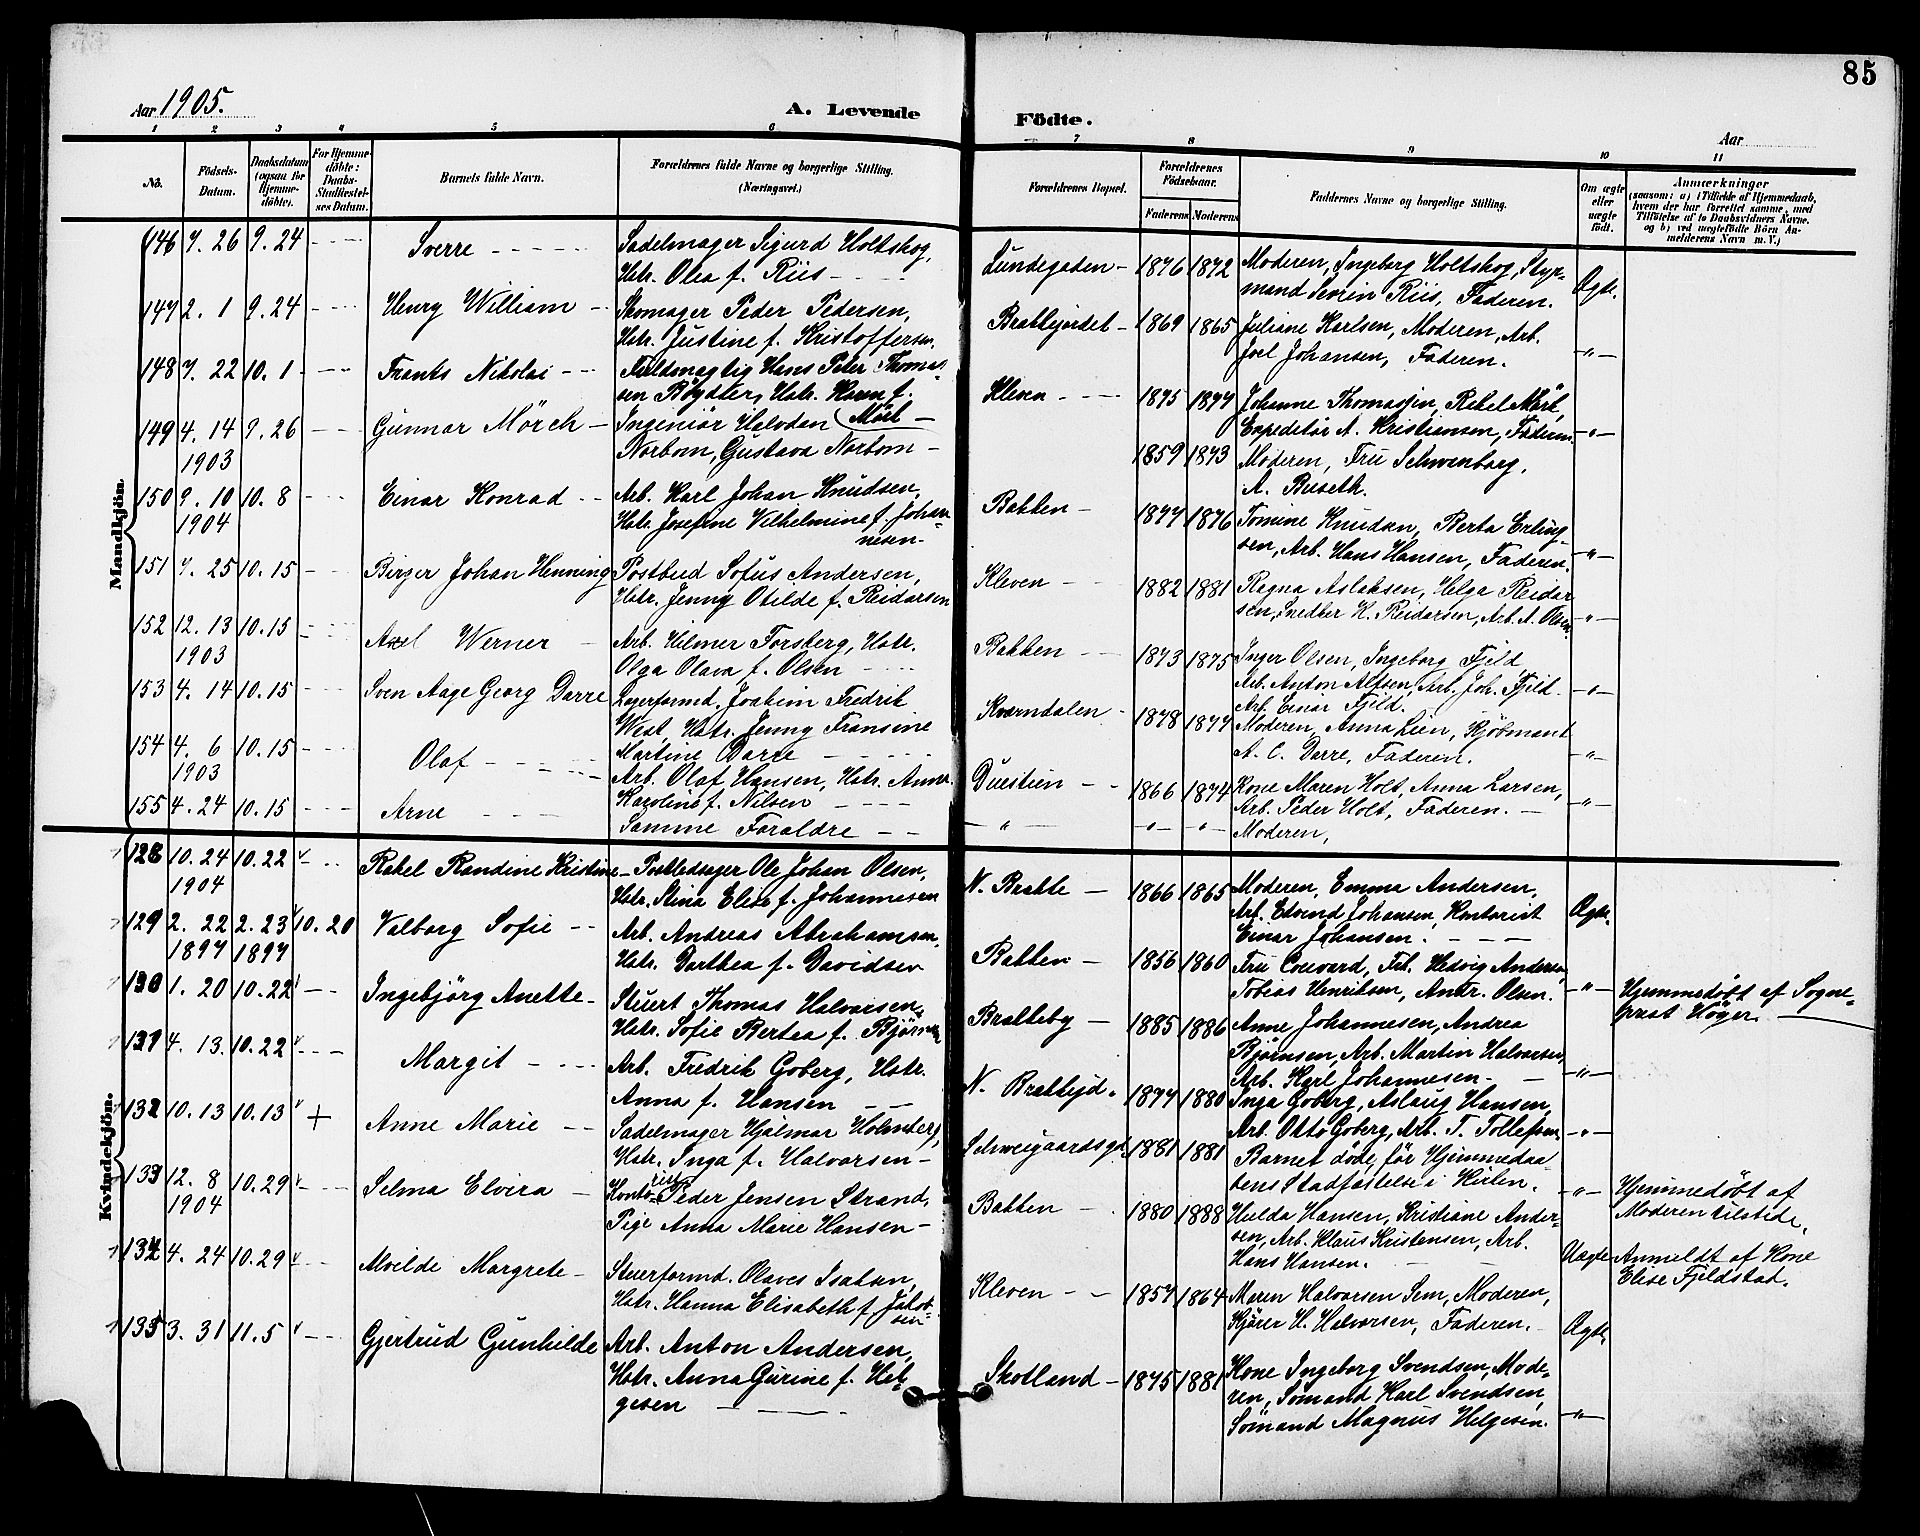 85
Aar 1905.
A. Levende Födte.
Aar
1 2 3 4 5 6 7 8 9 10 11
No.
Födsels-Datum.
Daabsdatum (ogsaa for Hjemme-döbte).
For Hjemme-döbte: Daabs-Stadfæstel-ses Datum.
Barnets fulde Navn.
Forældrenes fulde Navne og borgerlige Stilling.
(Næringsvei.)
Forældrenes Bopæl.
Forældrenes Födselsaar.
Faderens Moderens
Faddernes Navne og borgerlige Stilling.
Om ægte eller uægte födt.
Anmærkninger
(saasom: a) i Tilfælde af Hjemmedaab,
hvem der har forrettet samme, med
Tilföielse af to Daabsvidners Navne,
og b) ved uægtefödte Börn An-
melderens Navn m. V.)
Mandkjön.
146 7. 26 9. 24 Sverre Sadelmager Sigurd Holtskog, Lundegaden 1876 1872 Moderen, Ingeborg Holtskog, Styr-
Hstr. Olea f. Riis mand Severin Riis, Faderen. Ægte.
147 2. 1 9. 24 Henry William Skomager Peder Pedersen, Brattejordet 1869 1865 Juliane Karlsen, Moderen, Arb.
Hstr. Justine f. Kristoffersen Joel Johansen, Faderen. -"-
148 7. 22 10. 1 Frants Nikolai Fuldmægtig Hans Peter Thomas- Kleven 1875 1877 Johanne Thomassen, Rakel Mörk,
sen Böydler, Hstr. Karen f. Mörk Expeditör A. Kristiansen, Faderen -"-
149 4. 14 9. 26 Gunnar Mörch Ingeniör Halvdan 1859 1873 Moderen, Fru Schwenborg,
1903 Norbom, Gustava Norbom A. Buseth.
150 9. 10 10. 8 Einar Konrad Arb. Karl Johan Knudsen, Bakken 1877 1876 Tomine Knudsen, Berta Erling-
1904 Hstr. Josefine Vilhelmine f. Johan- sen, Arb. Hans Hansen, Faderen. -"-
nesen
151 7. 25 10. 15 Birger Johan Henning Postbud Sofus Andersen, Kleven 1882 1881 Ragna Aslaksen, Helga Reidar
Hstr. Jenny Otilde f. Reidarsen sen, Snedker K. Reidarsen, Arb. A. Olsen. -"-
152 12. 13 10. 15 Axel Werner Arb. Hilmer Forsberg, Hstr. Bakken 1873 1875 Inger Olsen, Ingeborg Fjeld
1903 Olga Olava f. Olsen Arb. Anton Alfsen, Arb. Joh. Fjeld -"-
Arb. Einar Fjeld.
153 4. 14 10. 15 Sven Aage Georg Darre Lagerformd. Joakim Fredrik Kværndalen 1878 1877 Moderen, Anna Lien, Kjöbmand
West, Hstr. Jenny Fransine A. C. Darre, Faderen. -"-
Martine Darre
154 4. 6 10. 15 Olaf Arb. Olaf Hansen, Hstr. Anne Duestien 1866 1874 Kone Maren Holt, Anna Larsen,
1903 Karoline f. Nilsen Arb. Peder Holt, Faderen. -"-
155 4. 24 10. 15 Arne Samme Forældre -"- -"- -"- Moderen,
Kvindekjön.
128 10. 24 10. 22 Rakel Randine Kristine Ole Johan Olsen, N. Bratte 1866 1865 Moderen, Emma Andersen,
1904 Hstr. Stina Elise f. Johannesen Arb. Edvind Johansen, Kontorist Ægte.
Einar Johansen.
129 2. 22 2. 23 10. 20 Valborg Sofie Arb. Andreas Abrahamsen, Bakken 1856 1860 Fru Couvard, Frk. Hedvig Andersen,
1897 1897 Hstr. Dorthea f. Davidsen Tobias Henriksen, Andr. Olsen. -"- Hjemmedöbt af Sogne-
prest Höyer.
130 1. 20 10. 22 Ingebjörg Anette Stuert Thomas Halvorsen, Bratteby 1885 1886 Anne Johannesen, Andrea
Hstr. Sofie Bertea f. Björnsen Björnsen, Arb. Martin Halvorsen,
Arb. Karl Johannesen. -"-
131 4. 13 10. 22 Margit Arb. Fredrik Goberg, Hstr. N. Brattejd. 1877 1880 Inga Goberg, Aslaug Hansen,
Anna f. Hansen Arb. Otto Goberg, Arb. T. Tollefsen -"-
132 10. 13 10. 13 + Anne Marie Sadelmager Hjalmar Holmberg, Schweigaardsgd. 1881 1881 Barnet döde för Hjemmedaa-
Hstr. Inga f. Halvorsen bens Stadfæstelse i Kirken. -"- Hjemmedöbt af
Moderen tilstede.
133 12. 8 10. 29 Selma Elvira Kontorist Peder Jensen Strand, Bakken 1880 1888 Hulda Hansen, Kristiane Ander-
1904 Pige Anna Marie Hansen sen, Arb. Klaus Kristensen, Arb.
Hans Hansen. Uægte Anmeldt af Kone
Elise Fjeldstad.
134 4. 24 10. 29 Alvilde Margrete Stuerformd. Olaves Isaksen, Kleven 1857 1864 Maren Halvorsen Sem, Moderen,
Hstr. Hanna Elisabeth f. Jakob- Kjörer H. Halvorsen, Faderen. Ægte.
sen
135 3. 31 11. 5 Gjertrud Gunhilde Arb. Anton Andersen, Skotland 1875 1881 Kone Ingeborg Svendsen, Mode-
Hstr. Anna Gurine f. Hel- ren, Sömand Karl Svendsen,
gesen Sömand Magnus Helgesen. -"-